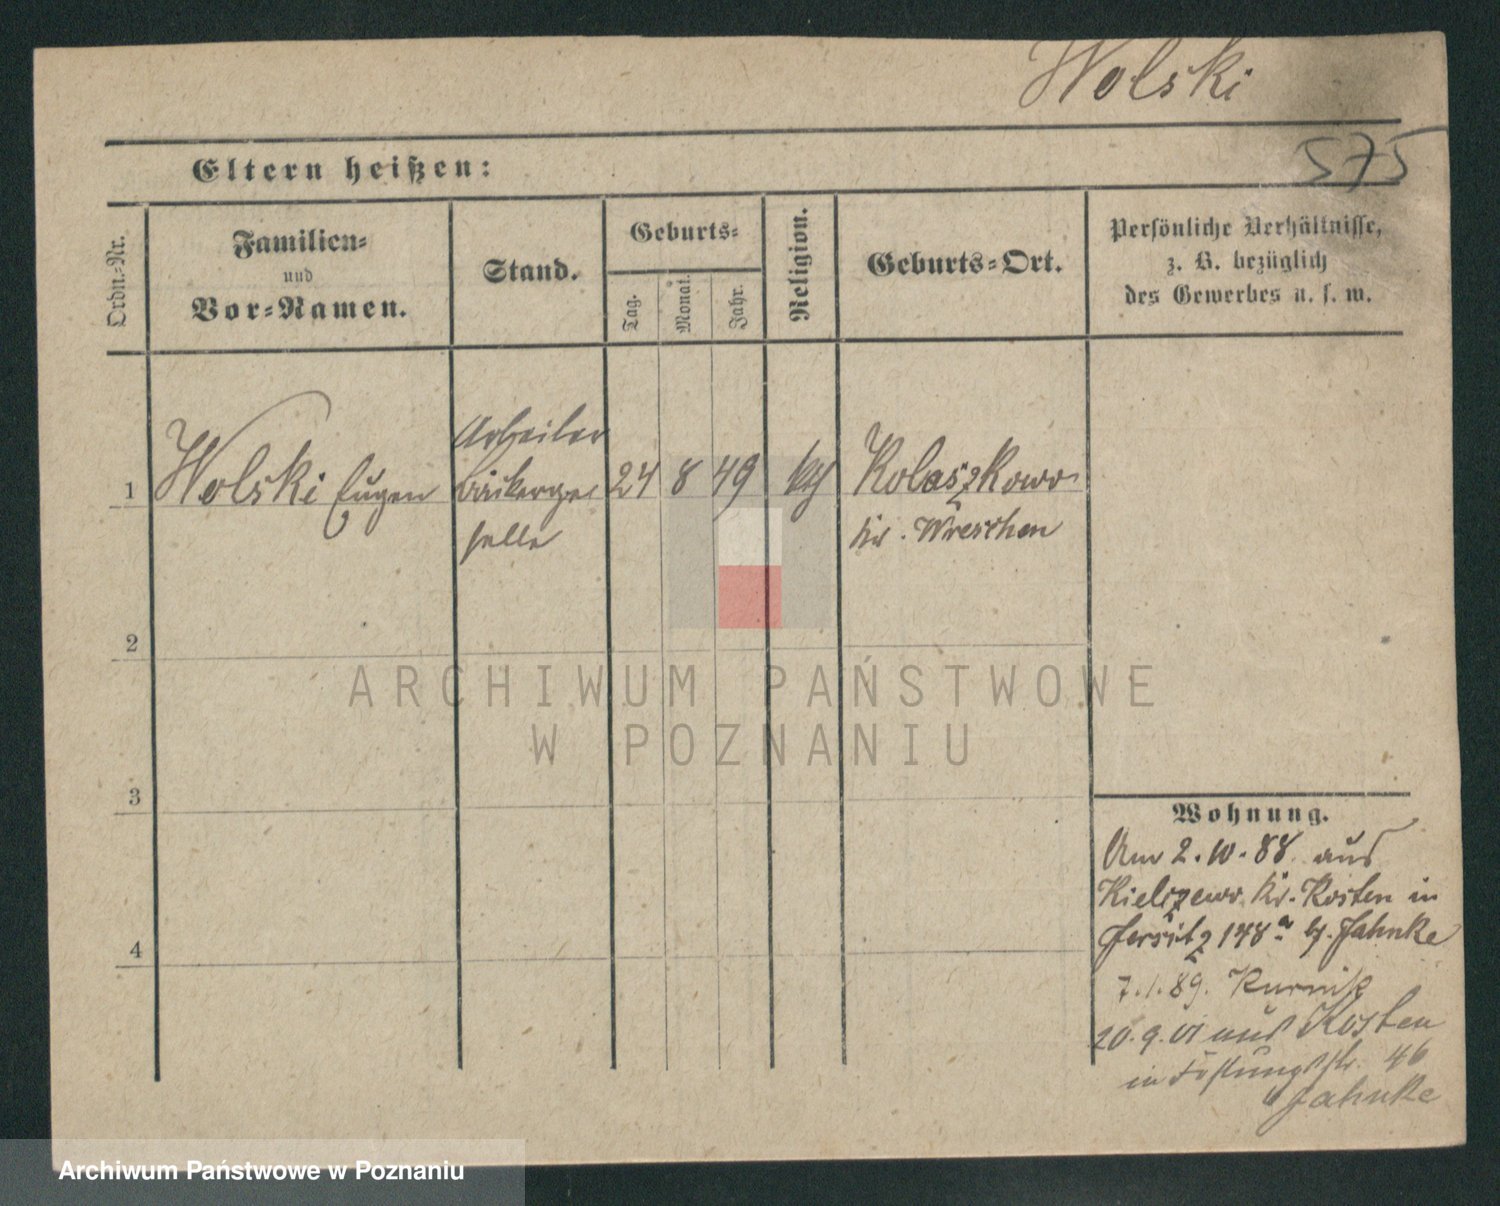 Wolski
575
Eltern heißen:
Ordn.-Nr.
Familien-
und
Vor-Namen.
Stand.
Geburts-
Tag.
Monat.
Jahr.
Religion.
Geburts-Ort.
Persönliche Verhältnisse,
z. B. bezüglich
des Gewerbes u. s. w.
1
Wolski Eugen
Arbeiter
Bäckerge
selle
24 8 49
kth
Kolaszkowo
Kr. Wreschen
2
3
4
Wohnung.
Am 2.10.88. aus
Kielczewo Kr. Kosten in
Jersitz 148a b/. Jahnke
7.1.89. Kurnik
20.9.01 aus Kosten
in 46
Jahnke
ARCHIWUM PAŃSTWOWE
W POZNANIU
Archiwum Państwowe w Poznaniu